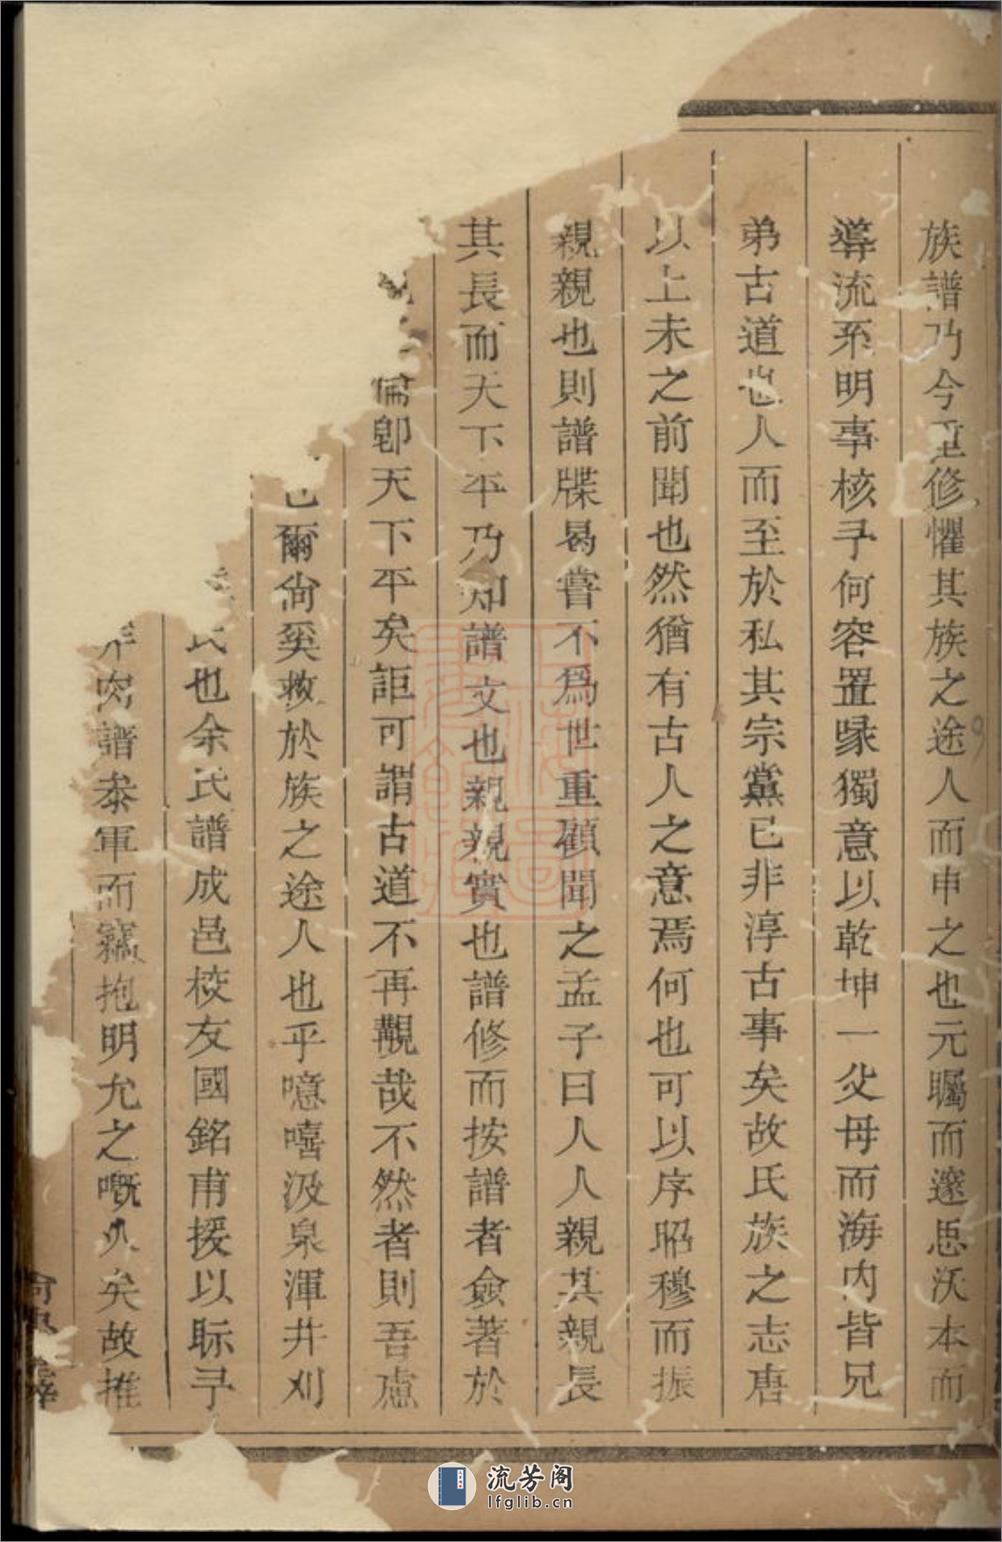 族譜乃今重修懼其族之途人而申之也元矚而邃思沃本而
導流系明事核予何容置喙獨意以乾坤一父母而海内皆兄
弟古道也人而至於私其宗黨已非淳古事矣故氏族之志唐
以上未之前聞也然猶有古人之意焉何也可以序昭穆而振
親親也則譜牒曷嘗不爲世重顧聞之孟子曰人人親其親長
其長而天下平乃知譜文也親親實也譜修而按譜者僉著於
卽天下平矣詎可謂古道不再覩哉不然者則吾慮
爾尙奚救於族之途人也乎噫嘻汲泉渾井刈
氏也余氏譜成邑校友國銘甫援以眎予
譜叅軍而竊抱明允之嘅久矣故推
流芳阁
lfglib.cn